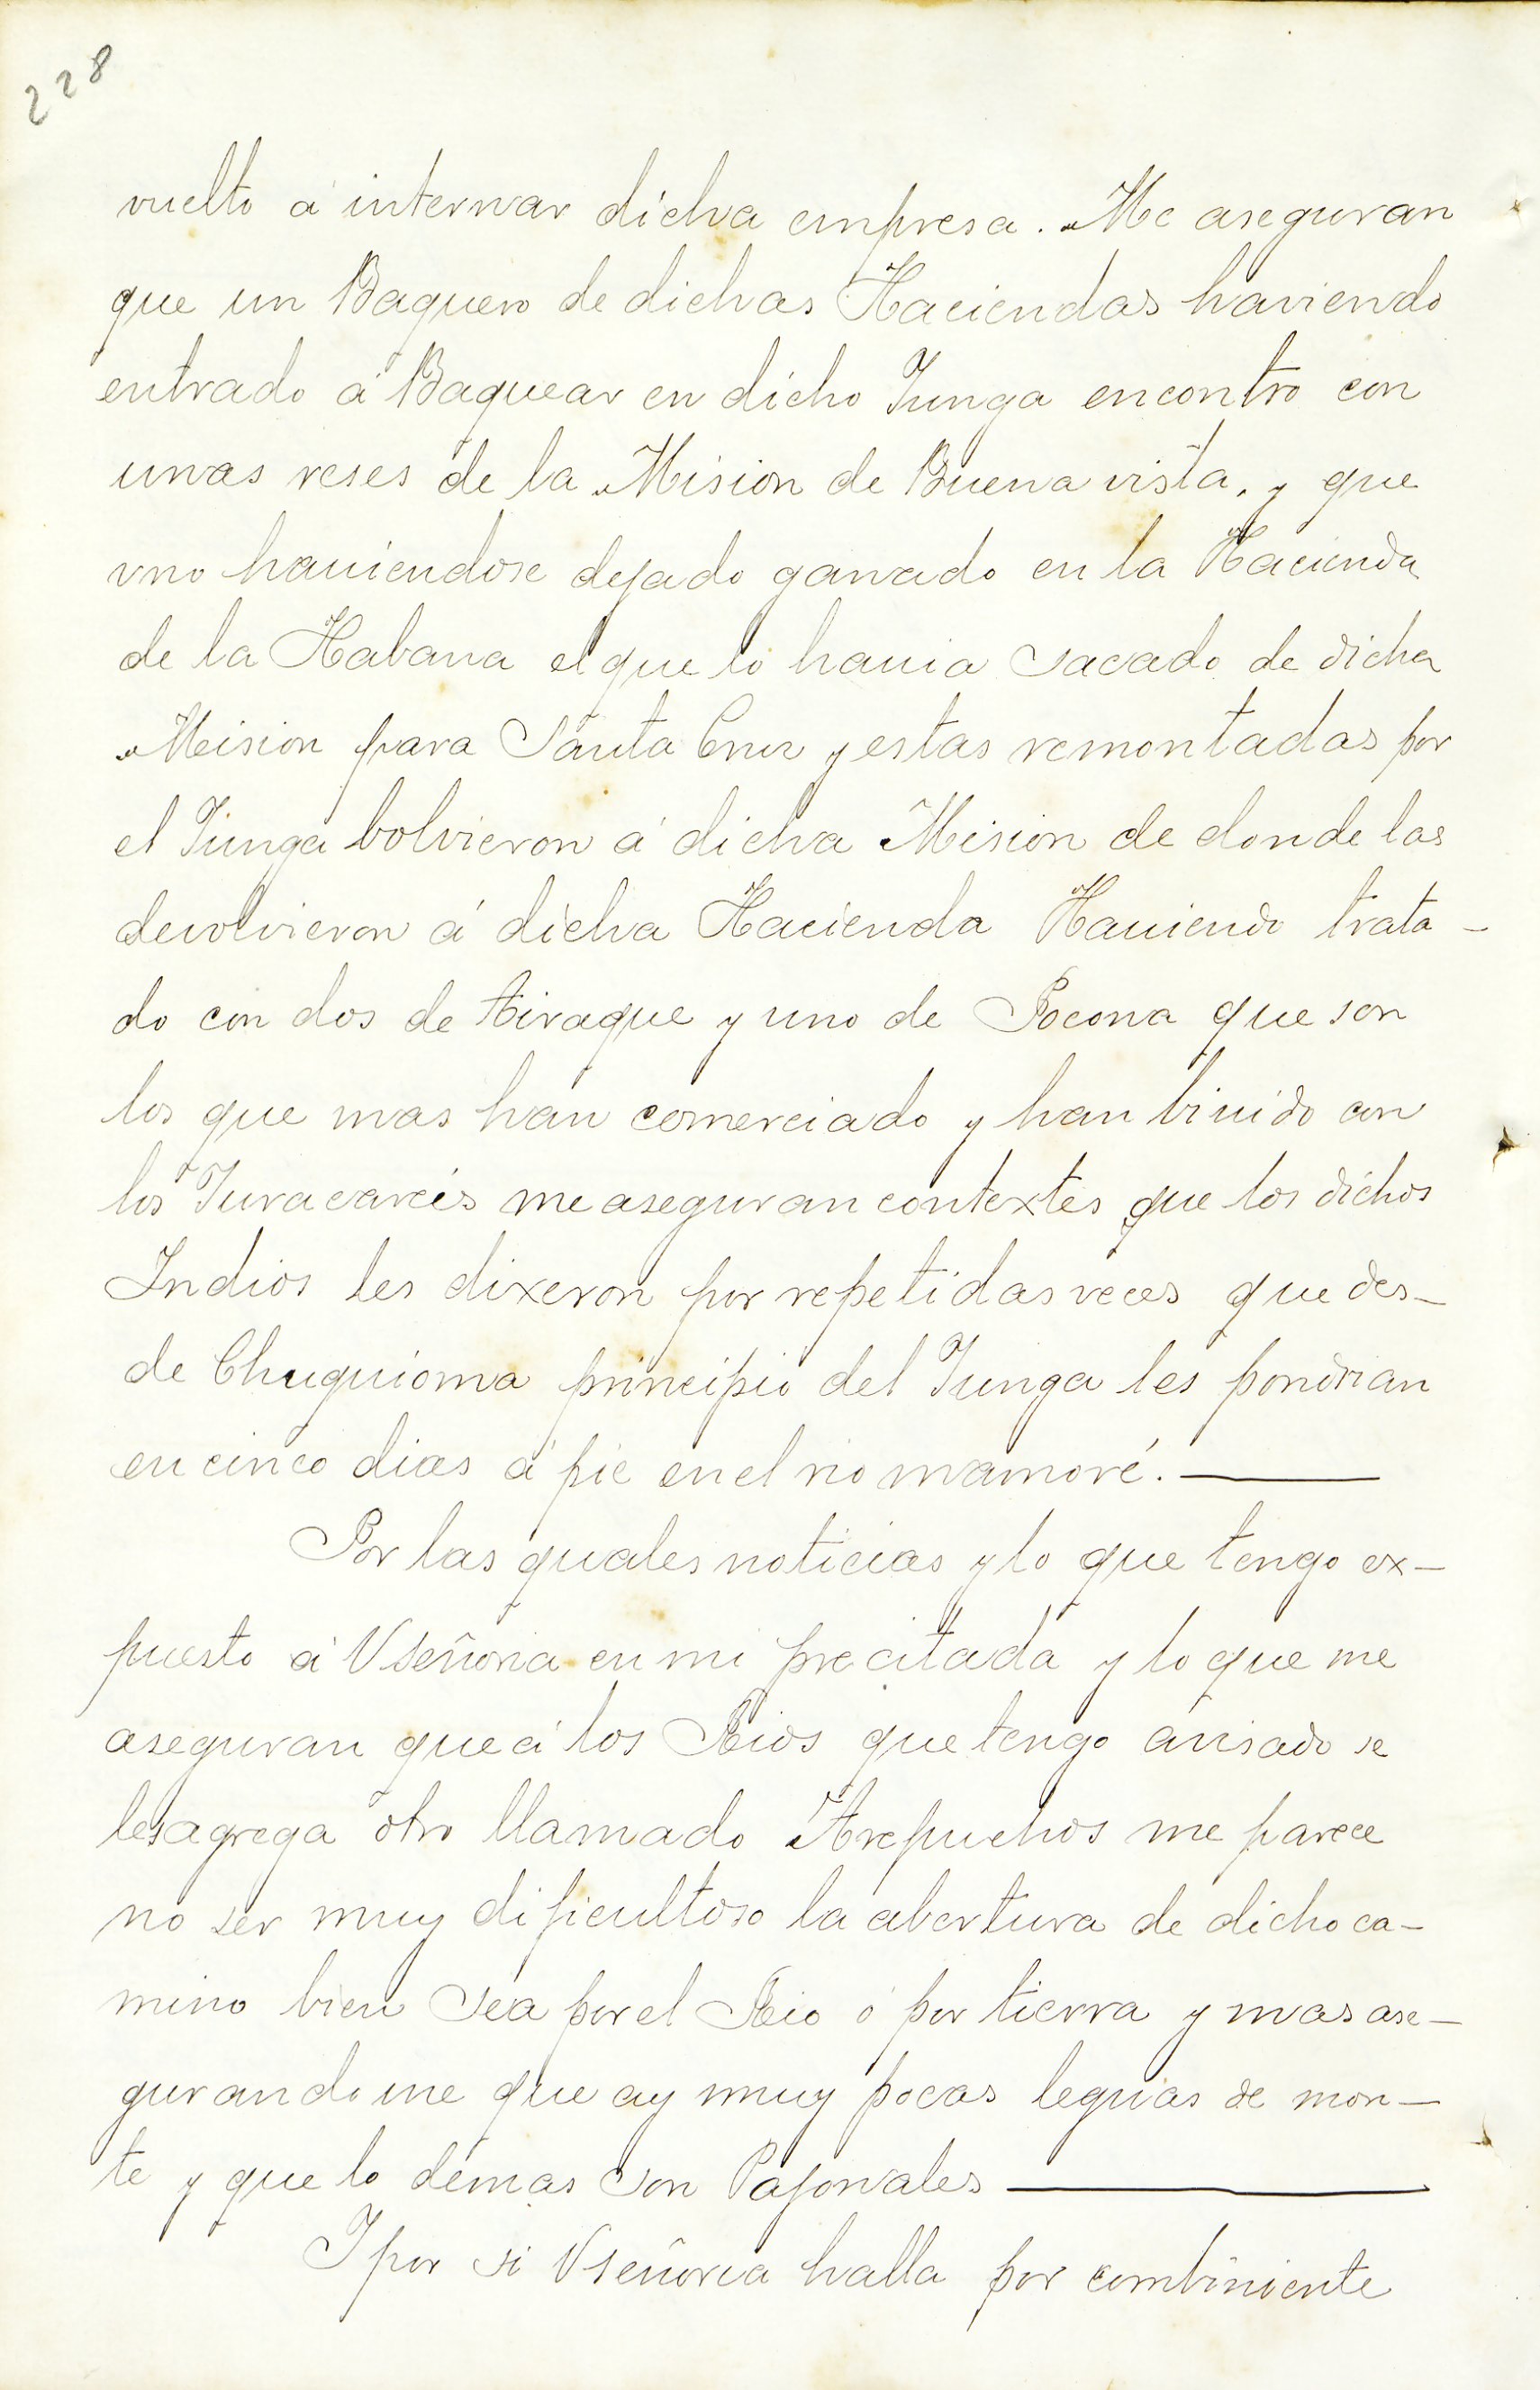 228
vuelto á internar dicha empresa. Me aseguran
que un Baquero de dichas Haciendas haviendo
entrado á Baquear en dicho Iunga encontro con
unas reses de la Mision de Buena vista, y que
vno hauiendose dejado ganado en la Hacienda
de la Habana el que lo hauia sacado de dicha
Mision para Santa Cruz y estas remontadas por
el Iunga bolvieron á dicha Mision de donde las
devolvieron á dicha Hacienda Hauiendo trata-
do con dos de Tiraque y uno de Pocona que son
los que mas han comerciado y han biuido con
los Iuracarées me aseguran contextes que los dichos
Indios les dixeron por repetidas veces que des-
de Chuquioma principio del Iunga les pondrian
en cinco dias á pie en el rio mamoré.
Por las quales noticias y lo que tengo ex-
puesto á Vseñoria en mi precitada y lo que me
aseguran que á los Rios que tengo avisado se
les agrega otro llamado Arepuchos me parece
no ser muy dificultoso la abertura de dicho ca-
mino bien sea por el Rio ó por tierra y mas ase-
gurandome que ay muy pocas leguas de mon-
te y que lo demas son Pajonales
I por si Vseñoria halla por combiniente